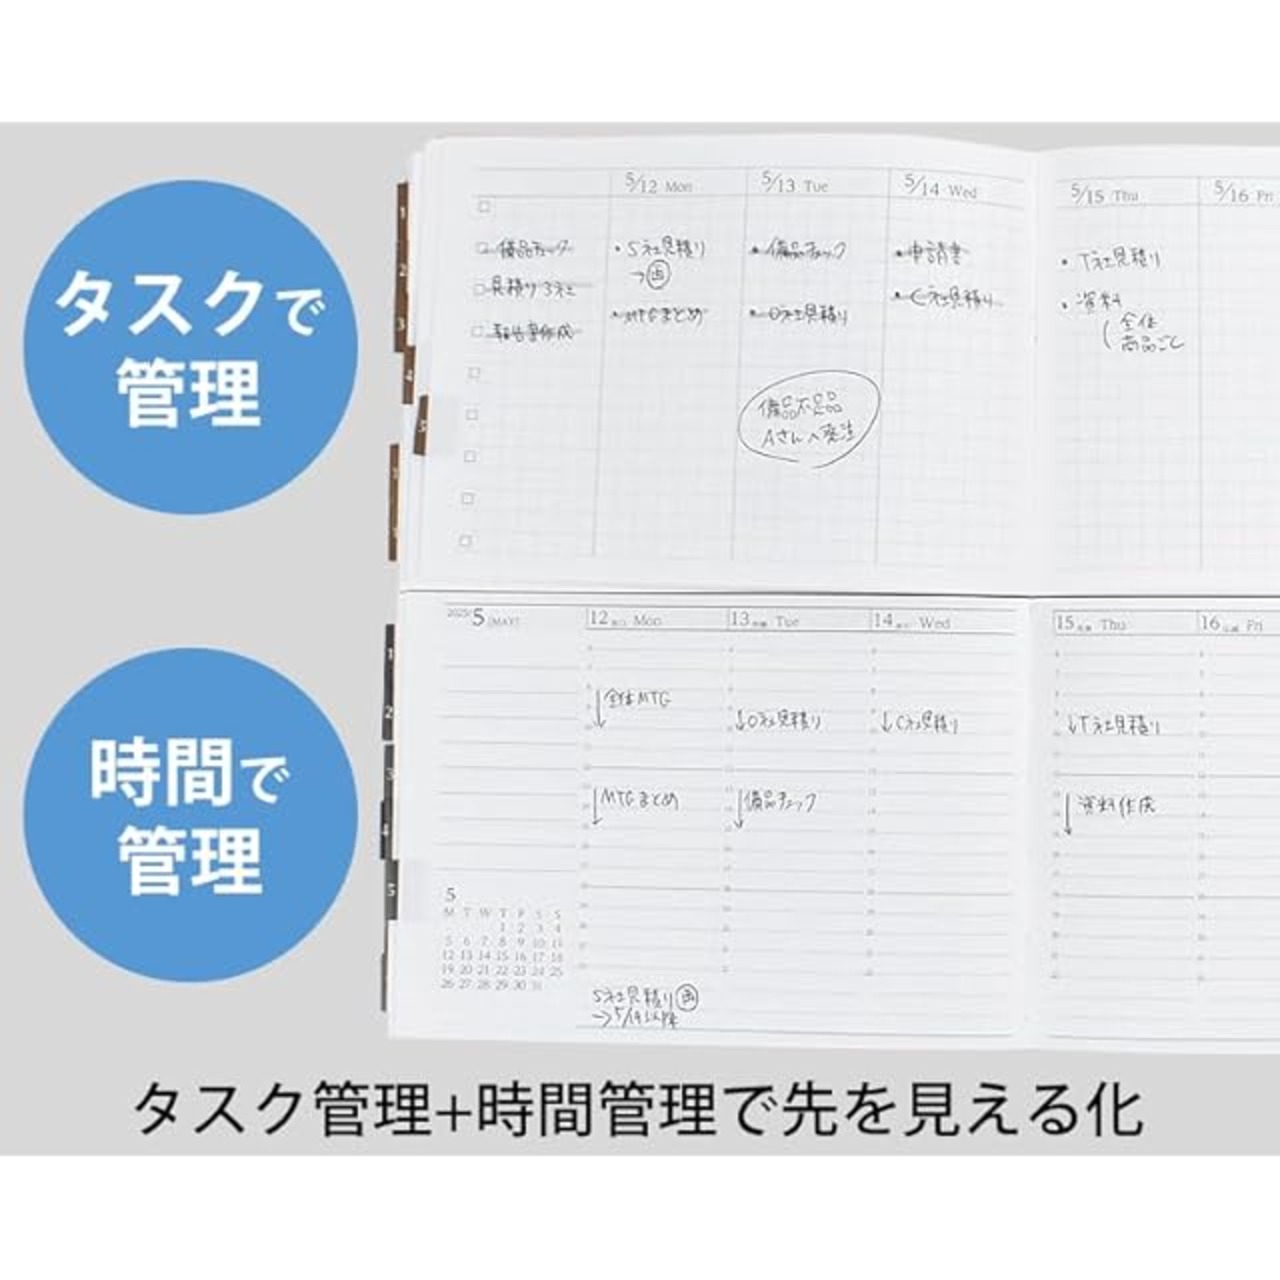 タスクで
管理
5/12 Mon
5/13 Tue
5/14 Wed
5/15 Thu
5/16 Fri
備品チェック
見積り3社
報告書作成
・S社見積り
→画
・MTGまとめ
・備品チェック
・D社見積り
備品不足品
Aさんへ発注
・申請書
・C社見積り
・T社見積り
・資料
全体
商品ごと
1
2
3
4
5
時間で
管理
2025 5 (MAY)
12 Mon
13 Tue
14 Wed
15 Thu
16 Fri
↓全体MTG
↓D社見積り
↓C社見積り
↓T社見積り
↓MTGまとめ
↓備品チェック
↓資料作成
1
2
3
4
5
5
M T W T F S S
1 2 3 4
5 6 7 8 9 10 11
12 13 14 15 16 17 18
19 20 21 22 23 24 25
26 27 28 29 30 31
S社見積り画
→5/14以降
タスク管理+時間管理で先を見える化